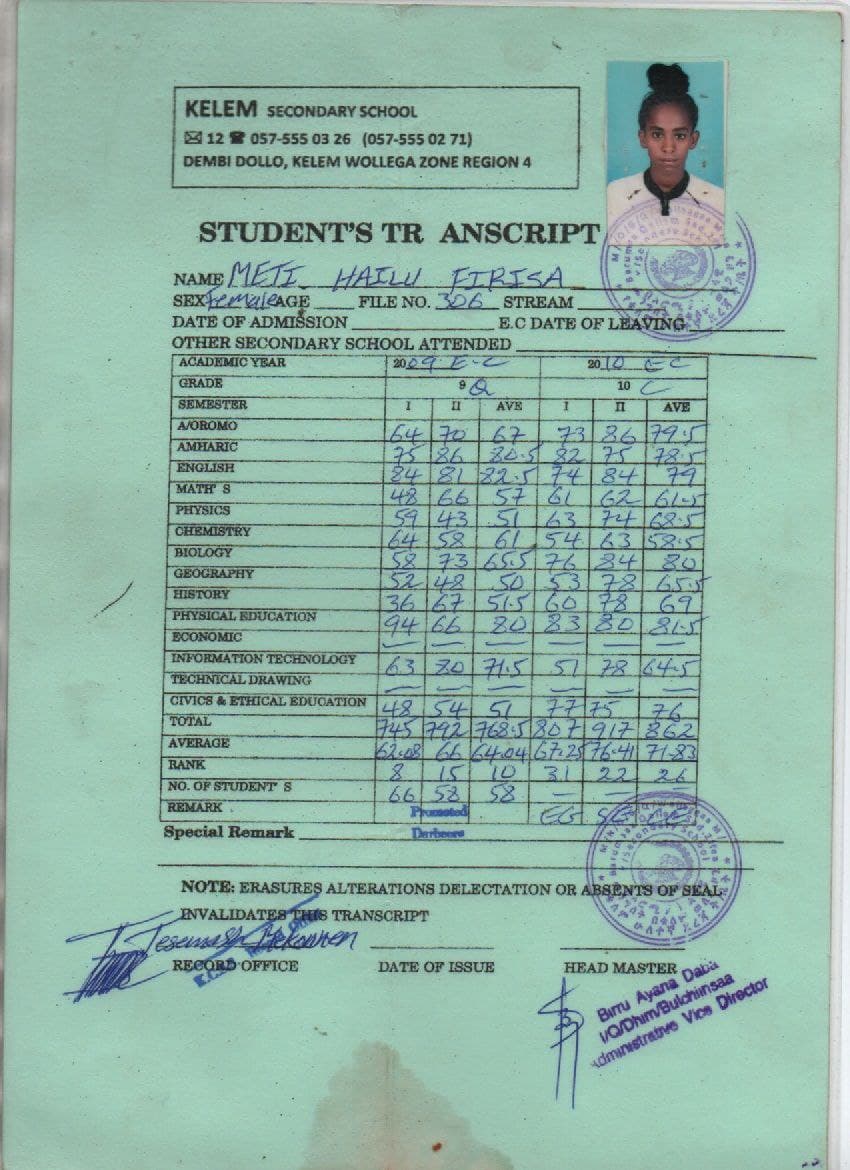 KELEM SECONDARY SCHOOL
✉ 12 ☎ 057-555 03 26 (057-555 02 71)
DEMBI DOLLO, KELEM WOLLEGA ZONE REGION 4
STUDENT'S TR ANSCRIPT
NAME METI HAILU FIRISA
SEX Female AGE ____ FILE NO. 306 STREAM
DATE OF ADMISSION ____ E.C DATE OF LEAVING
OTHER SECONDARY SCHOOL ATTENDED
ACADEMIC YEAR 2009 E.C 2010 EC
GRADE 9 Q 10 C
SEMESTER I II AVE I II AVE
A/OROMO 64 70 67 73 86 79.5
AMHARIC 75 86 80.5 82 75 78.5
ENGLISH 84 81 82.5 74 84 79
MATH' S 48 66 57 61 62 61.5
PHYSICS 59 43 51 63 74 68.5
CHEMISTRY 64 58 61 54 63 58.5
BIOLOGY 58 73 65.5 76 84 80
GEOGRAPHY 52 48 50 53 78 65.5
HISTORY 36 67 51.5 60 78 69
PHYSICAL EDUCATION 94 66 80 83 80 81.5
ECONOMIC — — — — — —
INFORMATION TECHNOLOGY 63 80 71.5 51 78 64.5
TECHNICAL DRAWING — — — — — —
CIVICS & ETHICAL EDUCATION 48 54 51 77 75 76
TOTAL 745 792 768.5 807 917 862
AVERAGE 62.08 66 64.04 67.25 76.41 71.83
RANK 8 15 10 31 22 26
NO. OF STUDENT' S 66 58 58 — — —
REMARK Promoted
Darbeera
Special Remark
NOTE: ERASURES ALTERATIONS DELECTATION OR ABSENTS OF SEAL
INVALIDATES THIS TRANSCRIPT
RECORD OFFICE DATE OF ISSUE HEAD MASTER
Birru Ayana Daba
I/Q/Dhim/Bulchiinsaa
Administrative Vice Director